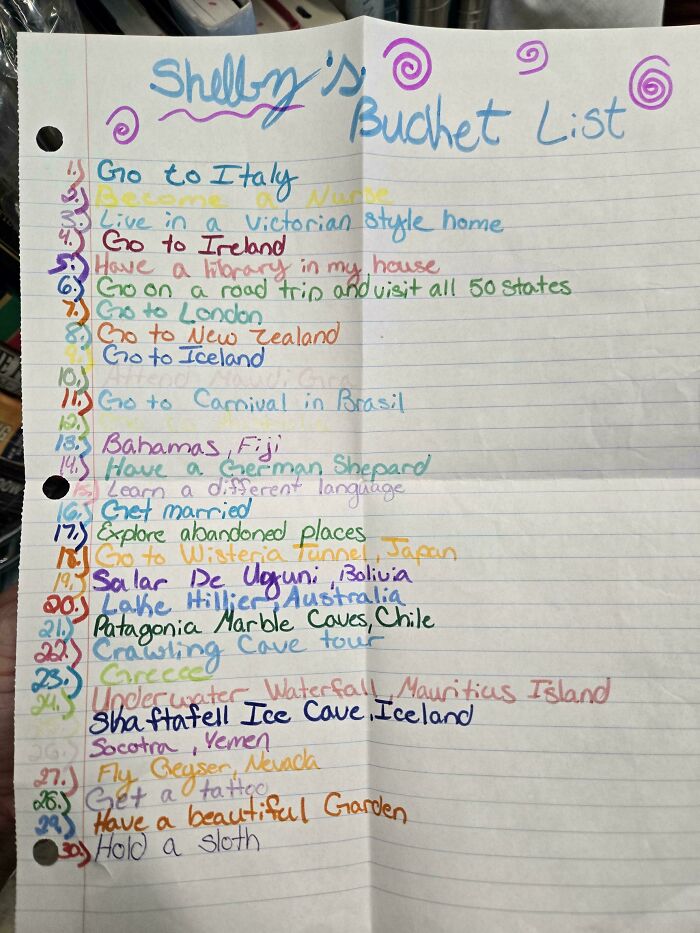 Shelby's
Bucket List
1.) Go to Italy
2.) Become a Nurse
3.) Live in a victorian style home
4.) Go to Ireland
5.) Have a library in my house
6.) Go on a road trip and visit all 50 states
7.) Go to London
8.) Go to New Zealand
9.) Go to Iceland
10.) Attend Maudi Gra
11.) Go to Carnival in Brasil
12.)
13.) Bahamas, Fiji
14.) Have a German Shepard
15.) Learn a different language
16.) Get married
17.) Explore abandoned places
18.) Go to Wisteria Tunnel, Japan
19.) Salar De Uguni, Bolivia
20.) Lake Hillier, Australia
21.) Patagonia Marble Caves, Chile
22.) Crawling Cave tour
23.) Greece
24.) Underwater Waterfall, Mauritius Island
Shaftafell Ice Cave, Iceland
26.) Socotra, Yemen
27.) Fly Geyser, Nevada
28.) Get a tattoo
29.) Have a beautiful Garden
30.) Hold a sloth